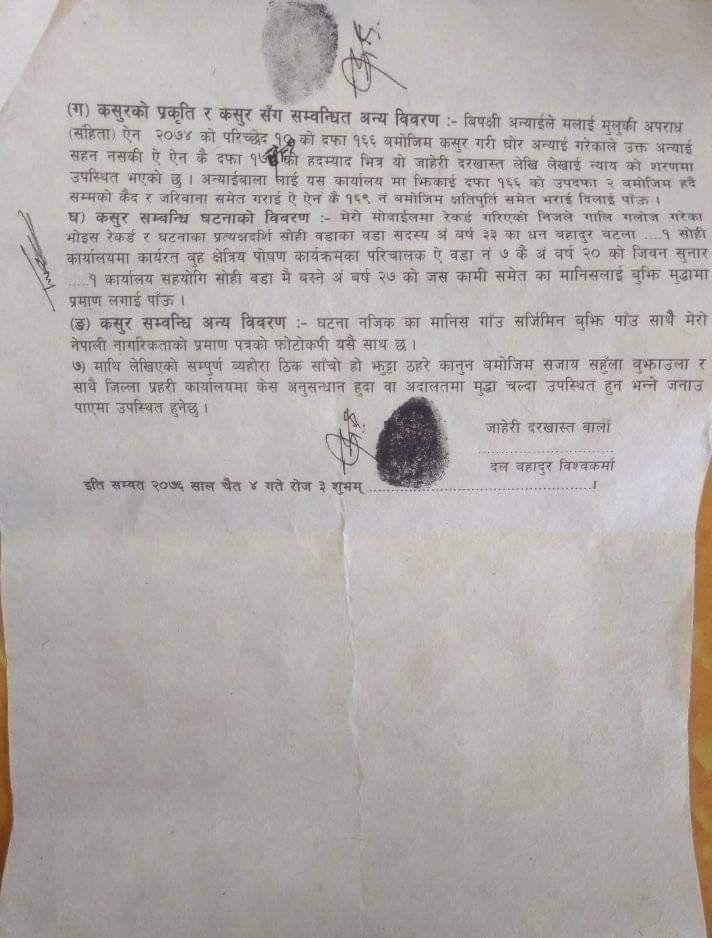 (ग) कसुरको प्रकृति र कसुर सँग सम्वन्धित अन्य विवरण :- विपक्षी अन्याईले मलाई मुलुकी अपराध
(संहिता) ऐन २०७४ को परिच्छेद १० को दफा १६६ बमोजिम कसुर गरी घोर अन्याई गरेकाले उक्त अन्याई
सहन नसकी ऐ ऐन कै दफा को हदम्याद भित्र यो जाहेरी दरखास्त लेखि लेखाई न्याय को शरणमा
उपस्थित भएको छ । अन्याईवाला लाई यस कार्यालय मा झिकाई दफा १६६ को उपदफा २ बमोजिम हदै
सम्मको कैद र जरिवाना समेत गराई ऐ ऐन कै १६९ नं बमोजिम क्षतिपुर्ति समेत भराई दिलाई पाँऊ ।
घ) कसुर सम्वन्धि घटनाको विवरण :- मेरो मोवाईलमा रेकर्ड गरिएको निजले गालि गलौज गरेका
भोइस रेकर्ड र घटनाका प्रत्यक्षदर्शि सोही वडाका वडा सदस्य अं बर्ष ३३ का धन बहादुर बटला ....१ सोही
कार्यालयमा कार्यरत वृह क्षेत्रिय पोषण कार्यक्रमका परिचालक ऐ वडा नं ७ कै अं बर्ष २० को जिवन सुनार
.....१ कार्यालय सहयोगि सोही बडा मै बस्ने अं बर्ष २७ को जस कामी समेत का मानिसलाई बुझि मुद्धामा
प्रमाण लगाई पाँऊ ।
(ङ) कसुर सम्वन्धि अन्य विवरण :- घटना नजिक का मानिस गाँउ सर्जिमिन बुझि पाँउ साथै मेरो
नेपाली नागरिकताको प्रमाण पत्रको फोटोकपी यसै साथ छ ।
७) माथि लेखिएको सम्पुर्ण व्यहोरा ठिक साँचो हो झुट्ठा ठहरे कानुन वमोजिम सजाय सहुँला बुझाउला र
साथै जिल्ला प्रहरी कार्यालयमा केस अनुसन्धान हुदा वा अदालतमा मुद्धा चल्दा उपस्थित हुन भन्ने जनाउ
पाएमा उपस्थित हुनेछु ।
जाहेरी दरखास्त वाला
दल बहादुर विश्वकर्मा
इति सम्वत २०७६ साल चैत ४ गते रोज ३ शुभम् ।